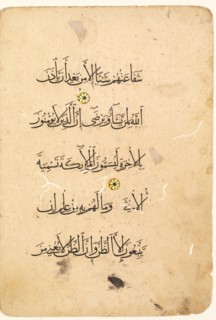 شفاعتهم شيئا إلا من بعد أن يأذن
الله لمن يشاء ويرضى إن الذين لا يؤمنون
بالآخرة ليسمون الملائكة تسمية
الأنثى وما لهم به من علم إن
يتبعون إلا الظن وإن الظن لا يغني من